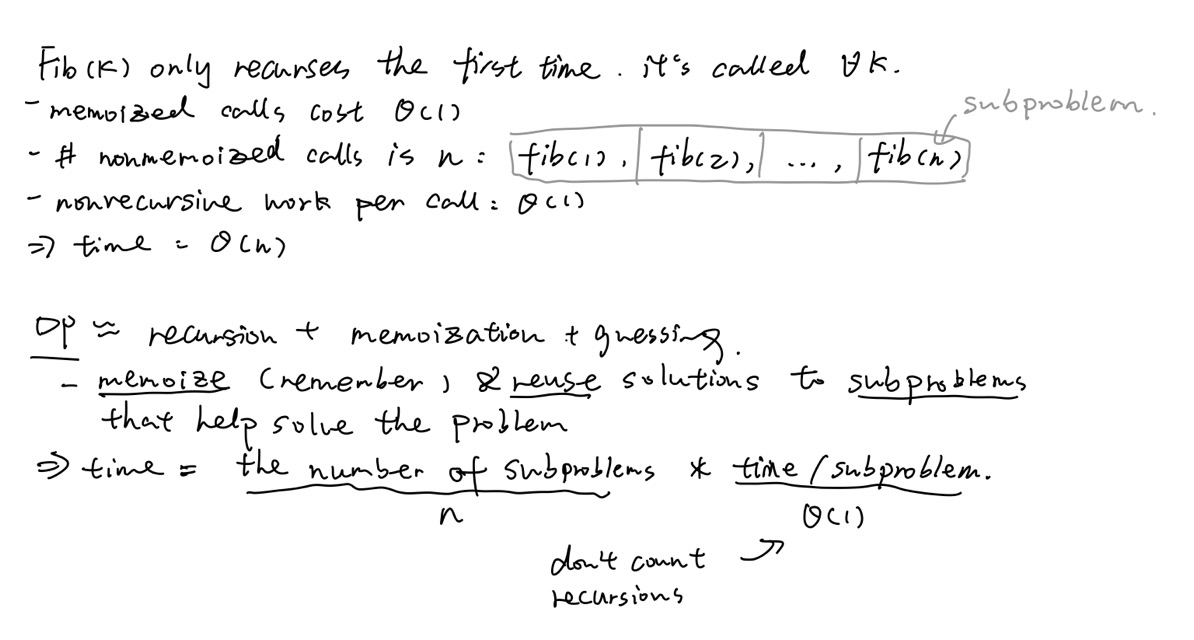 Fib(k) only recurses the first time. it's called ∀k.
- memoized calls cost Θ(1)
subproblem.
- # nonmemoized calls is n: fib(1), fib(2), ..., fib(n)
- nonrecursive work per call: Θ(1)
⇒ time = Θ(n)
DP ≈ recursion + memoization + guessing.
- memoize (remember) & reuse solutions to subproblems
that help solve the problem
⇒ time = the number of subproblems * time/subproblem.
n Θ(1)
don't count
recursions